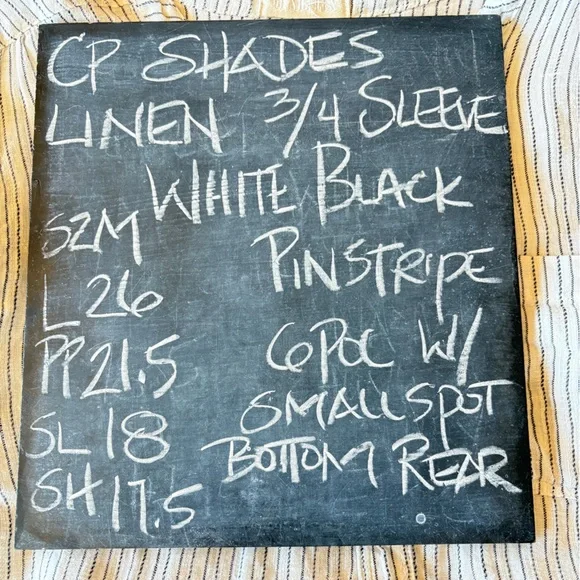 CP SHADES
LINEN 3/4 SLEEVE
WHITE BLACK
PINSTRIPE
SZM
L 26
PP 21.5
SL 18
SH 17.5
GPOC W/
SMALL SPOT
BOTTOM REAR